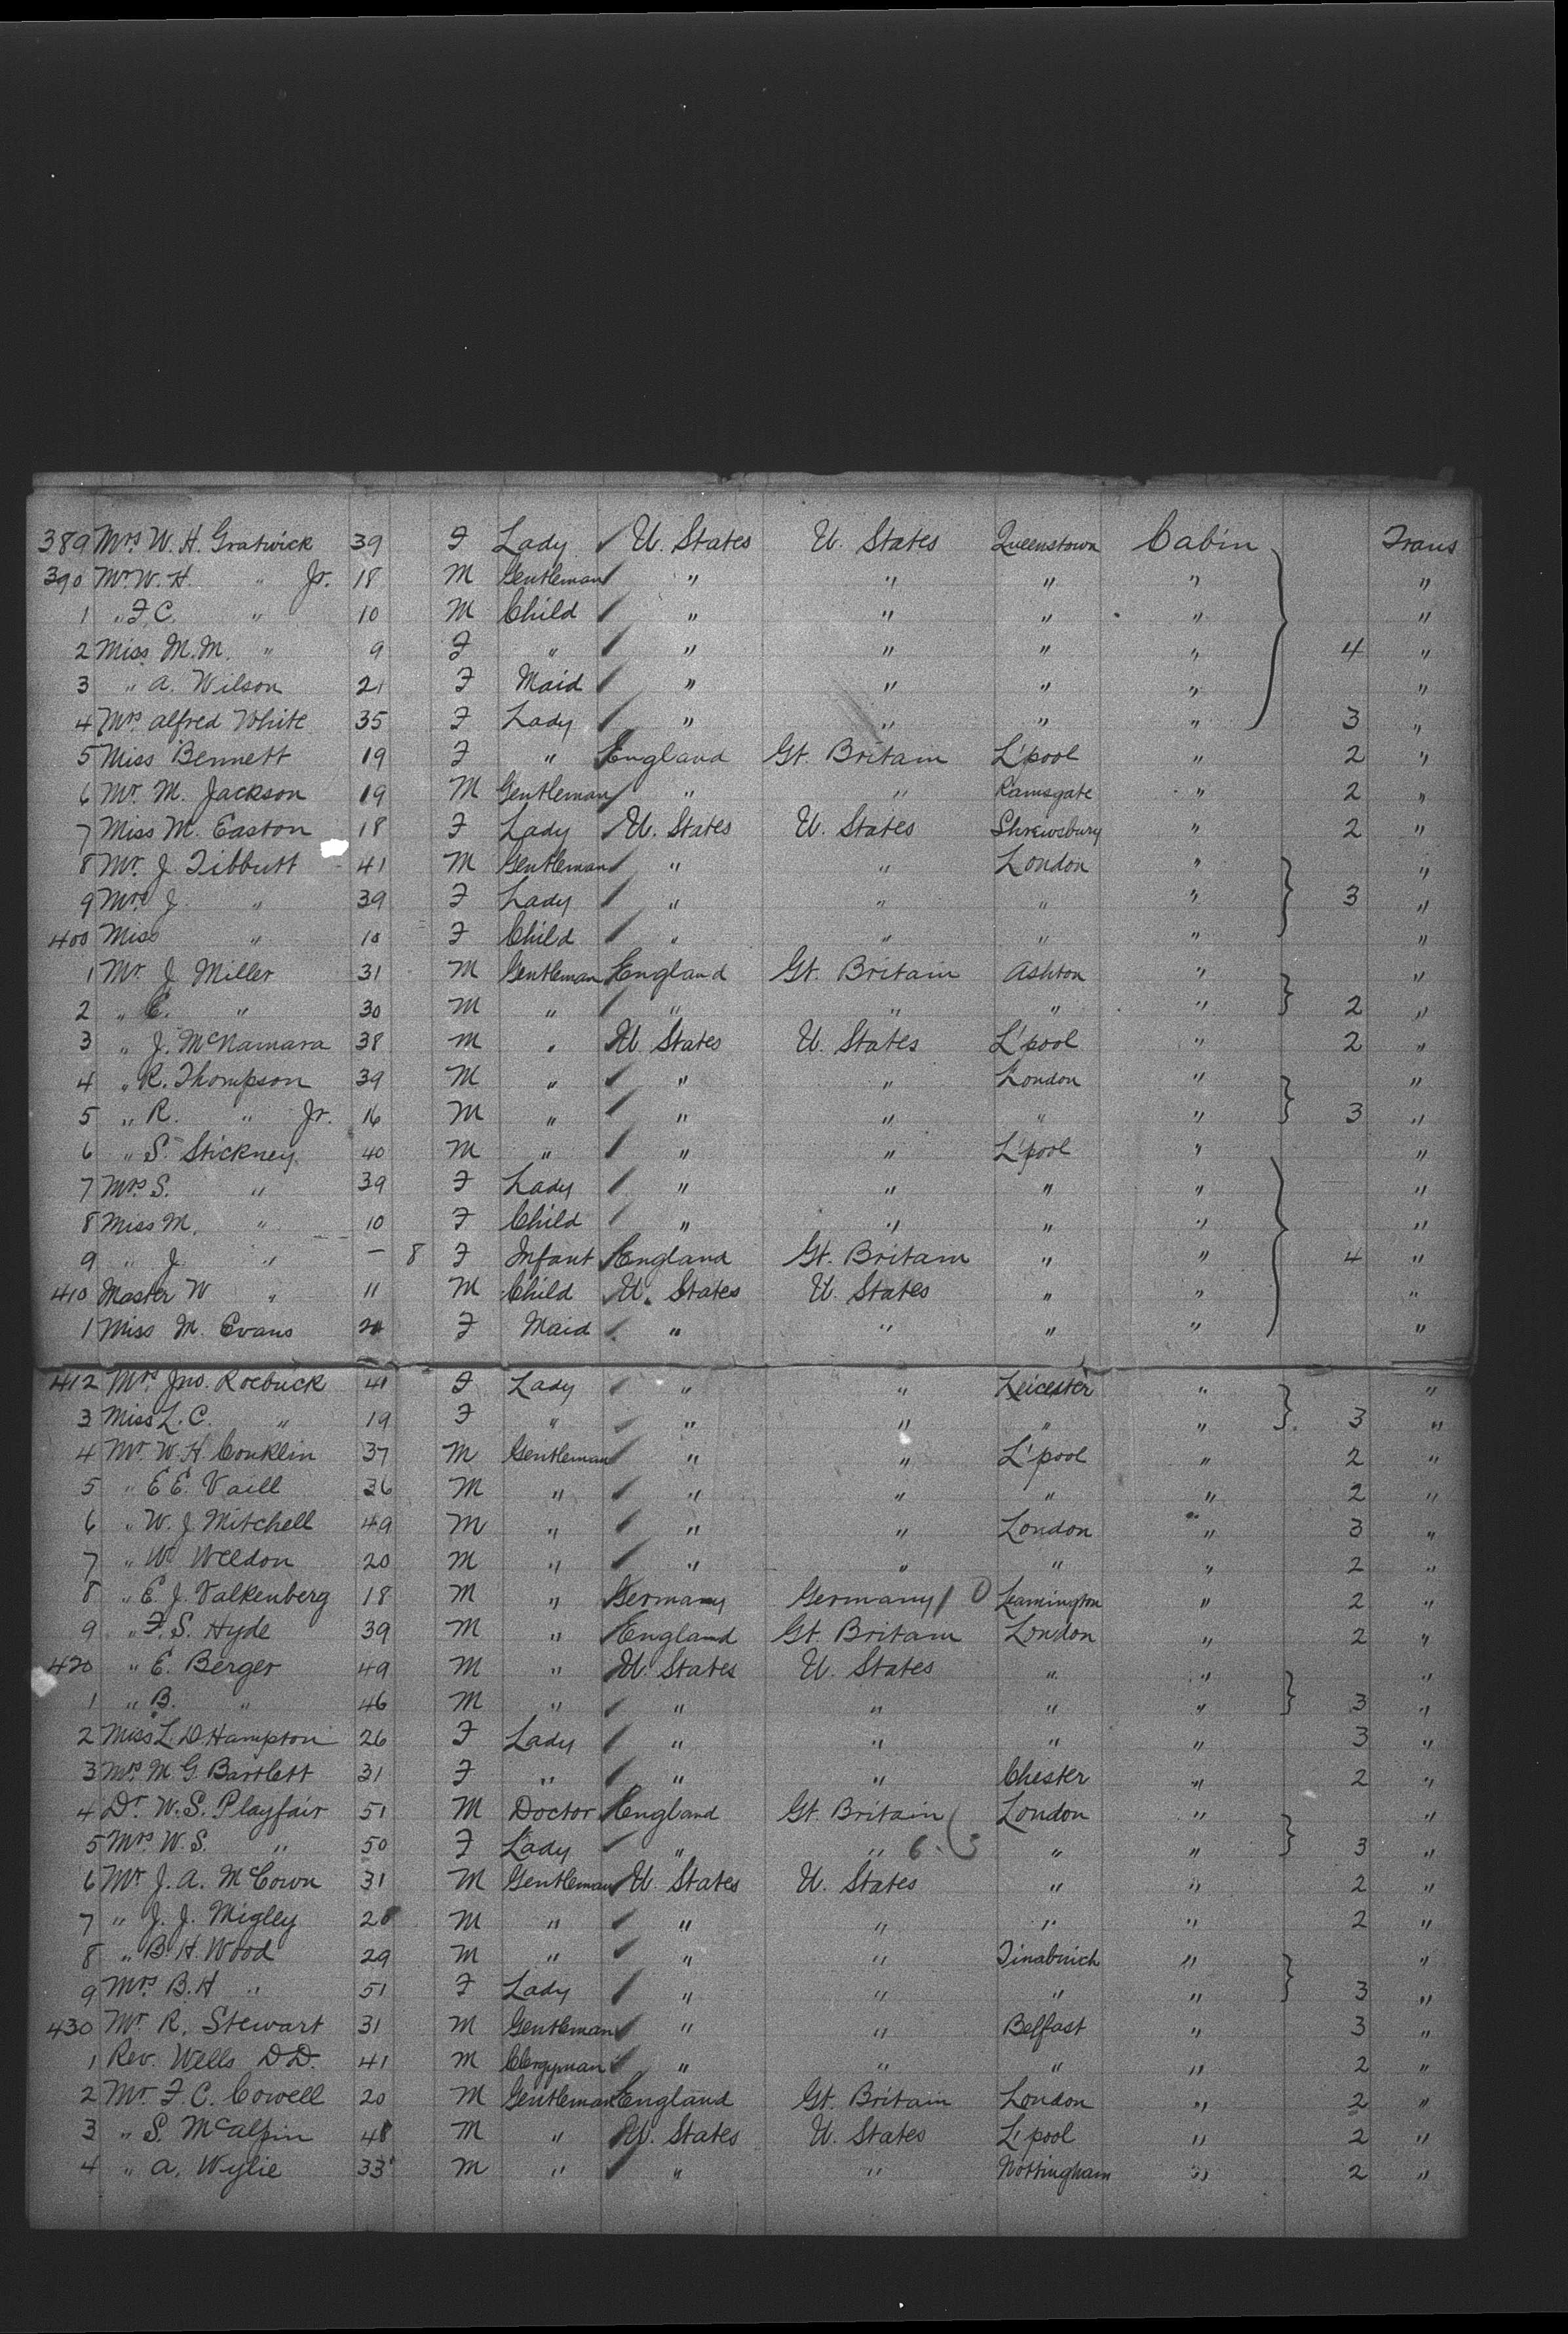 389 Mrs W. H. Gratwick 39 F Lady U. States U. States Queenstown Cabin Trans
390 Mr W. H. " Jr. 18 M Gentleman " " " " "
1 " F. C. " 10 M Child " " " " "
2 Miss M. M. " 9 F " " " " " 4 "
3 " A. Wilson 21 F Maid " " " " "
4 Mrs Alfred White 35 F Lady " " " " 3 "
5 Miss Bennett 19 F " England Gt. Britain L'pool " 2 "
6 Mr. M. Jackson 19 M Gentleman " " Ramsgate " 2 "
7 Miss M. Easton 18 F Lady U. States U. States Shrewsbury " 2 "
8 Mr. J. Tibbutt 41 M Gentleman " " London " "
9 Mrs J. " 39 F Lady " " " " 3 "
400 Miss " 10 F Child " " " " "
1 Mr. J Miller 31 M Gentleman England Gt. Britain Ashton " "
2 " E. " 30 M " " " " " 2 "
3 " J. McNamara 38 M " U. States U. States L'pool " 2 "
4 " R. Thompson 39 M " " " London " "
5 " R. " Jr. 16 M " " " " " 3 "
6 " S. Stickney 40 M " " " L'pool " "
7 Mrs S. " 39 F Lady " " " " "
8 Miss M. " 10 F Child " " " " "
9 " J " – 8 F Infant England Gt. Britain " " 4 "
410 Master W " 11 M Child U. States U. States " " "
1 Miss M. Evans F Maid " " " " "
412 Mrs Jno. Roebuck 41 F Lady " " Leicester " "
3 Miss L. C. " 19 F " " " " " 3 "
4 Mr. W. H. Conklin 37 M Gentleman " " L'pool " 2 "
5 " E E. Vaill 36 M " " " " " 2 "
6 " W. J. Mitchell 49 M " " " London " 3 "
7 " W. Weldon 20 M " " " " " 2 "
8 " E. J. Valkenberg 18 M " Germany Germany Leamington " 2 "
9 " F. S. Hyde 39 M " England Gt. Britain London " 2 "
420 " E. Berger 49 M " U. States U. States " " "
1 " B. " 46 M " " " " " 3 "
2 Miss L. D. Hampton 26 F Lady " " " " 3 "
3 Mrs M. G Bartlett 31 F " " " Chester " 2 "
4 Dr W. S. Playfair 51 M Doctor England Gt. Britain London " "
5 Mrs W. S. " 50 F Lady " " " " 3 "
6 Mr J. A. McCown 31 M Gentleman U. States U. States " " 2 "
7 " J. J. Migley M " " " " " 2 "
8 " B. H. Wood 29 M " " " " "
9 Mrs B. H " 51 F Lady " " " " 3 "
430 Mr R. Stewart 31 M Gentleman " " Belfast " 3 "
1 Rev. Wells D.D. 41 M Clergyman " " " " 2 "
2 Mr F. C. Cowell 20 M Gentleman England Gt. Britain London " 2 "
3 " S. McAlpin 48 M " U. States U. States L'pool " 2 "
4 " A. Wylie 33 M " " " Nottingham " 2 "